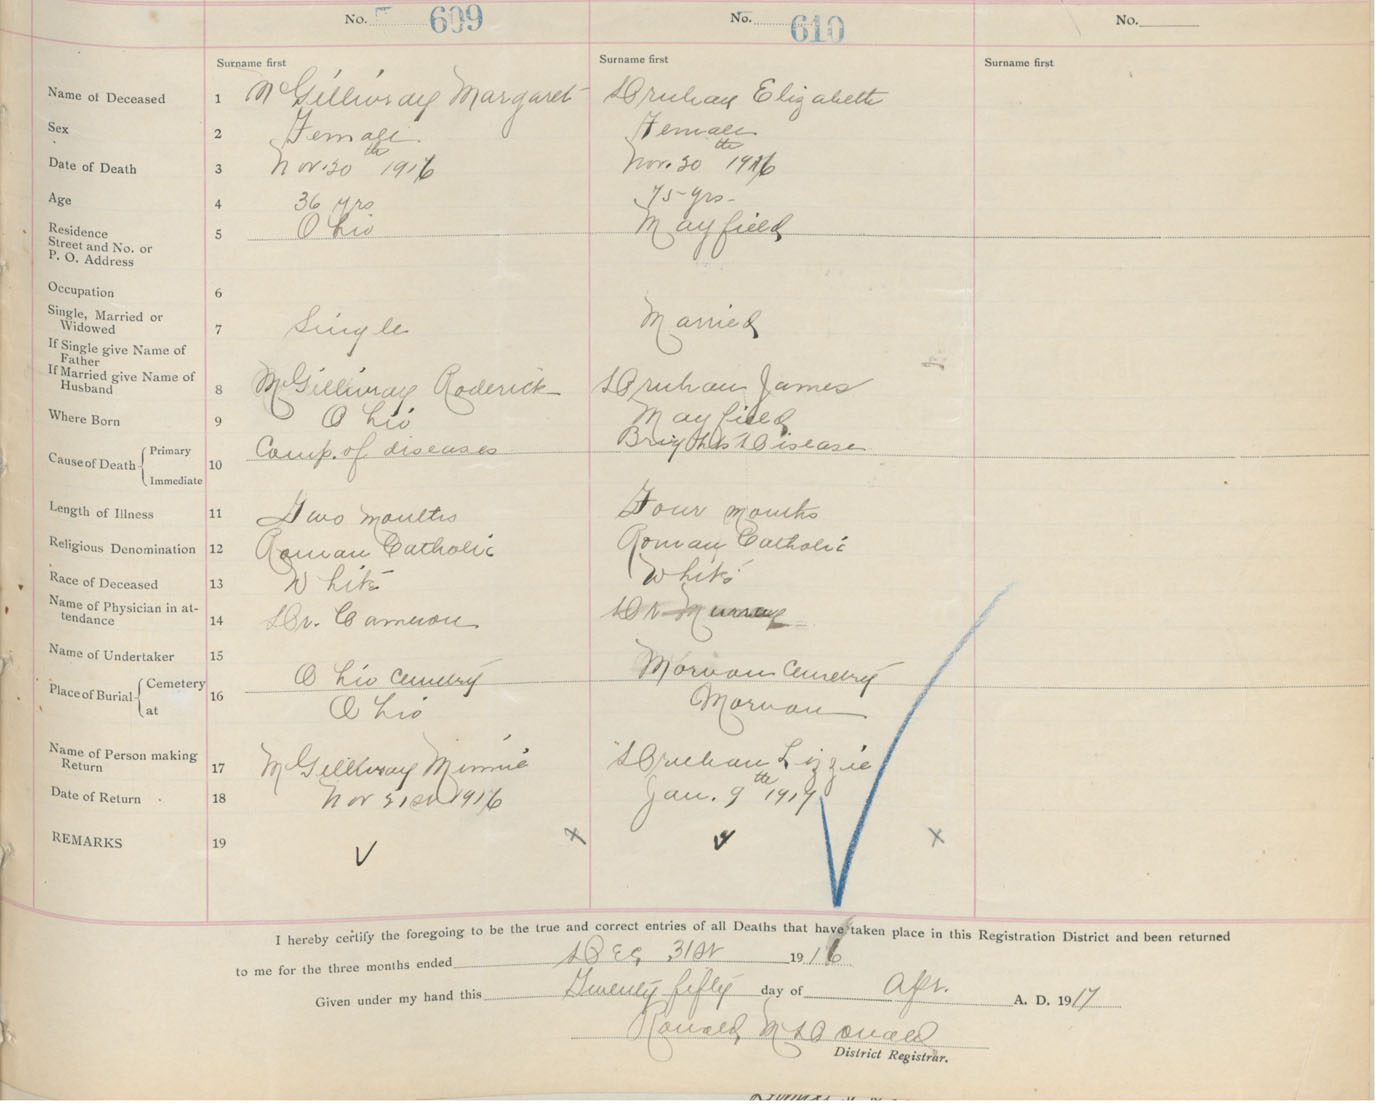 No. 609 No. 610 No.
Surname first Surname first Surname first
Name of Deceased 1 McGillivray Margaret Druhan Elizabeth
Sex 2 Female Female
Date of Death 3 Nov. 20th 1916 Nov. 30th 1916
Age 4 36 yrs 75 yrs.
Residence
Street and No. or
P. O. Address 5 Ohio Mayfield
Occupation 6
Single, Married or
Widowed 7 Single Married
If Single give Name of
Father
If Married give Name of
Husband 8 McGillivray Roderick Druhan James
Where Born 9 Ohio Mayfield
Cause of Death Primary 10 Comp. of diseases Brights Disease
Immediate
Length of Illness 11 Two months Four months
Religious Denomination 12 Roman Catholic Roman Catholic
Race of Deceased 13 White White
Name of Physician in at-
tendance 14 Dr. Cameron Dr Murray
Name of Undertaker 15
Place of Burial Cemetery 16 Ohio Cemetry Morvan Cemetry
at Ohio Morvan
Name of Person making
Return 17 McGillivray Minnie Druhan Lizzie
Date of Return 18 Nov 21st 1916 Jan. 9th 1917
REMARKS 19
I hereby certify the foregoing to be the true and correct entries of all Deaths that have taken place in this Registration District and been returned
to me for the three months ended Dec. 31st 1916
Given under my hand this Twenty fifty day of Apr. A. D. 1917
Ronald McDonald
District Registrar.